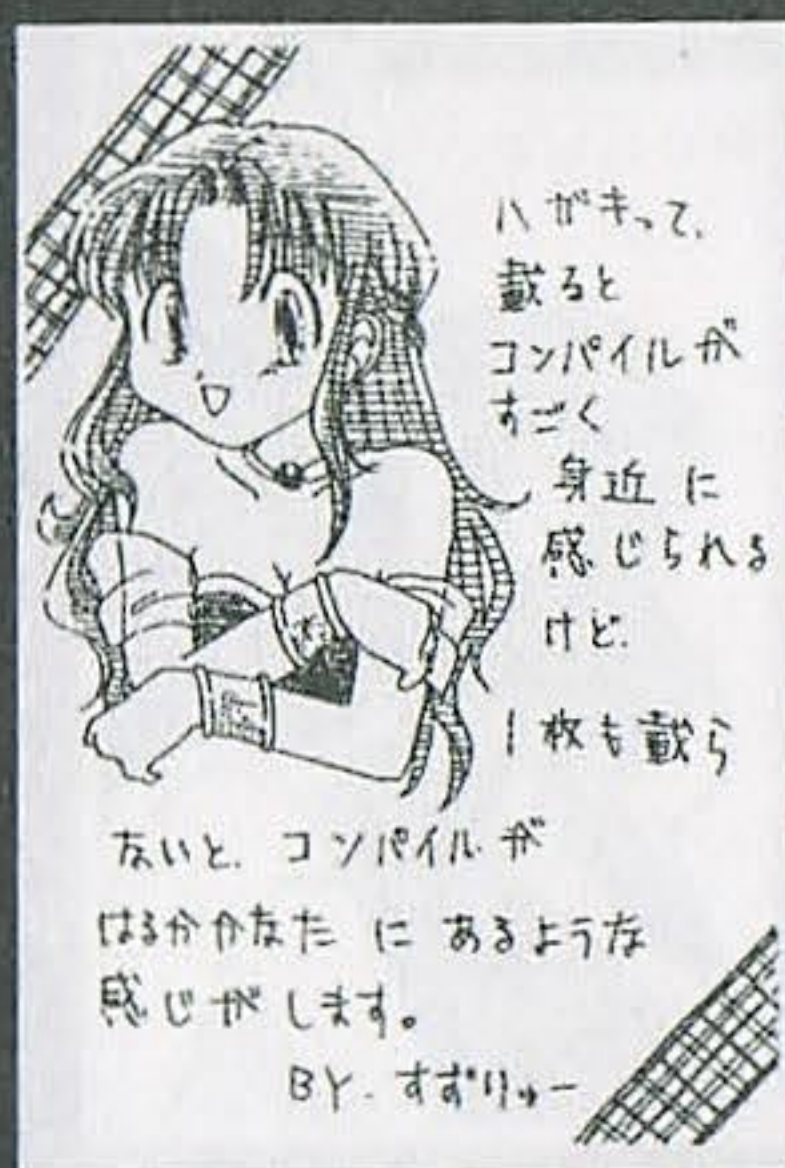 ハガキって、
載ると
コンパイルが
すごく
身近に
感じられる
けど.
1枚も載ら
ないと. コンパイルが
はるかかなたにあるような
感じがします。
BY. すずりゅー